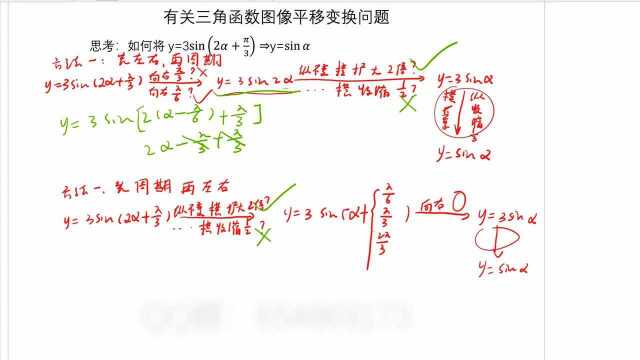 有关三角函数图像平移变换问题
思考：如何将 y=3sin(2α+π/3) ⇒y=sin α
方法一：先左右，再周期
y=3sin(2α+π/3) 向右π/3？× 向右π/6？✓ y=3sin2α 纵不变 横扩大2倍？✓ ··· 横缩1/2？× y=3sinα
y=3sin[2(α-π/6)+π/3]
2α-π/3+π/3
y=sinα
方法一、先周期 再左右
y=3sin(2α+π/3) 横扩大2倍？✓ ··· 横缩1/2？× y=3sin(α+{π/6 π/3 2π/3) 向右 y=3sinα
y=sinα